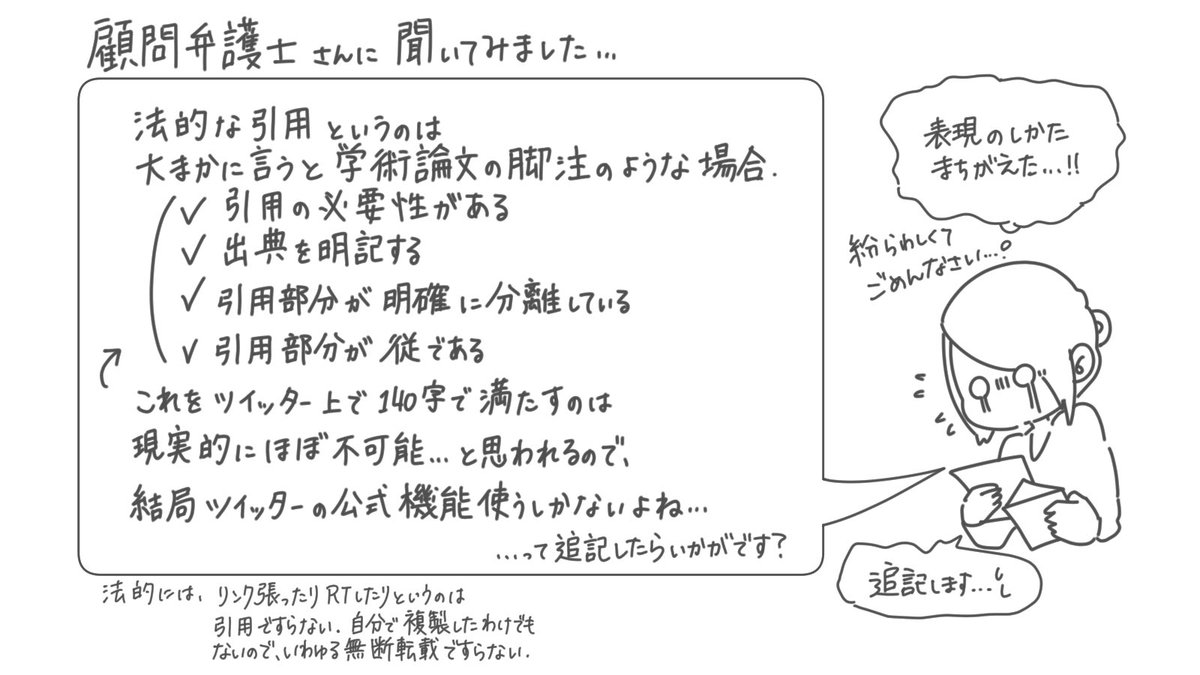 顧問弁護士さんに聞いてみました…
法的な引用というのは
大まかに言うと学術論文の脚注のような場合.
✓ 引用の必要性がある
✓ 出典を明記する
✓ 引用部分が明確に分離している
✓ 引用部分が従である
これをツイッター上で140字で満たすのは
現実的にほぼ不可能…と思われるので、
結局ツイッターの公式機能使うしかないよね…
…って追記したらいかがです?
法的には、リンク張ったりRTしたりというのは
引用ですらない.自分で複製したわけでも
ないので、いわゆる無断転載ですらない.
表現のしかた
まちがえた…!!
紛らわしくて
ごめんなさい…
追記します…